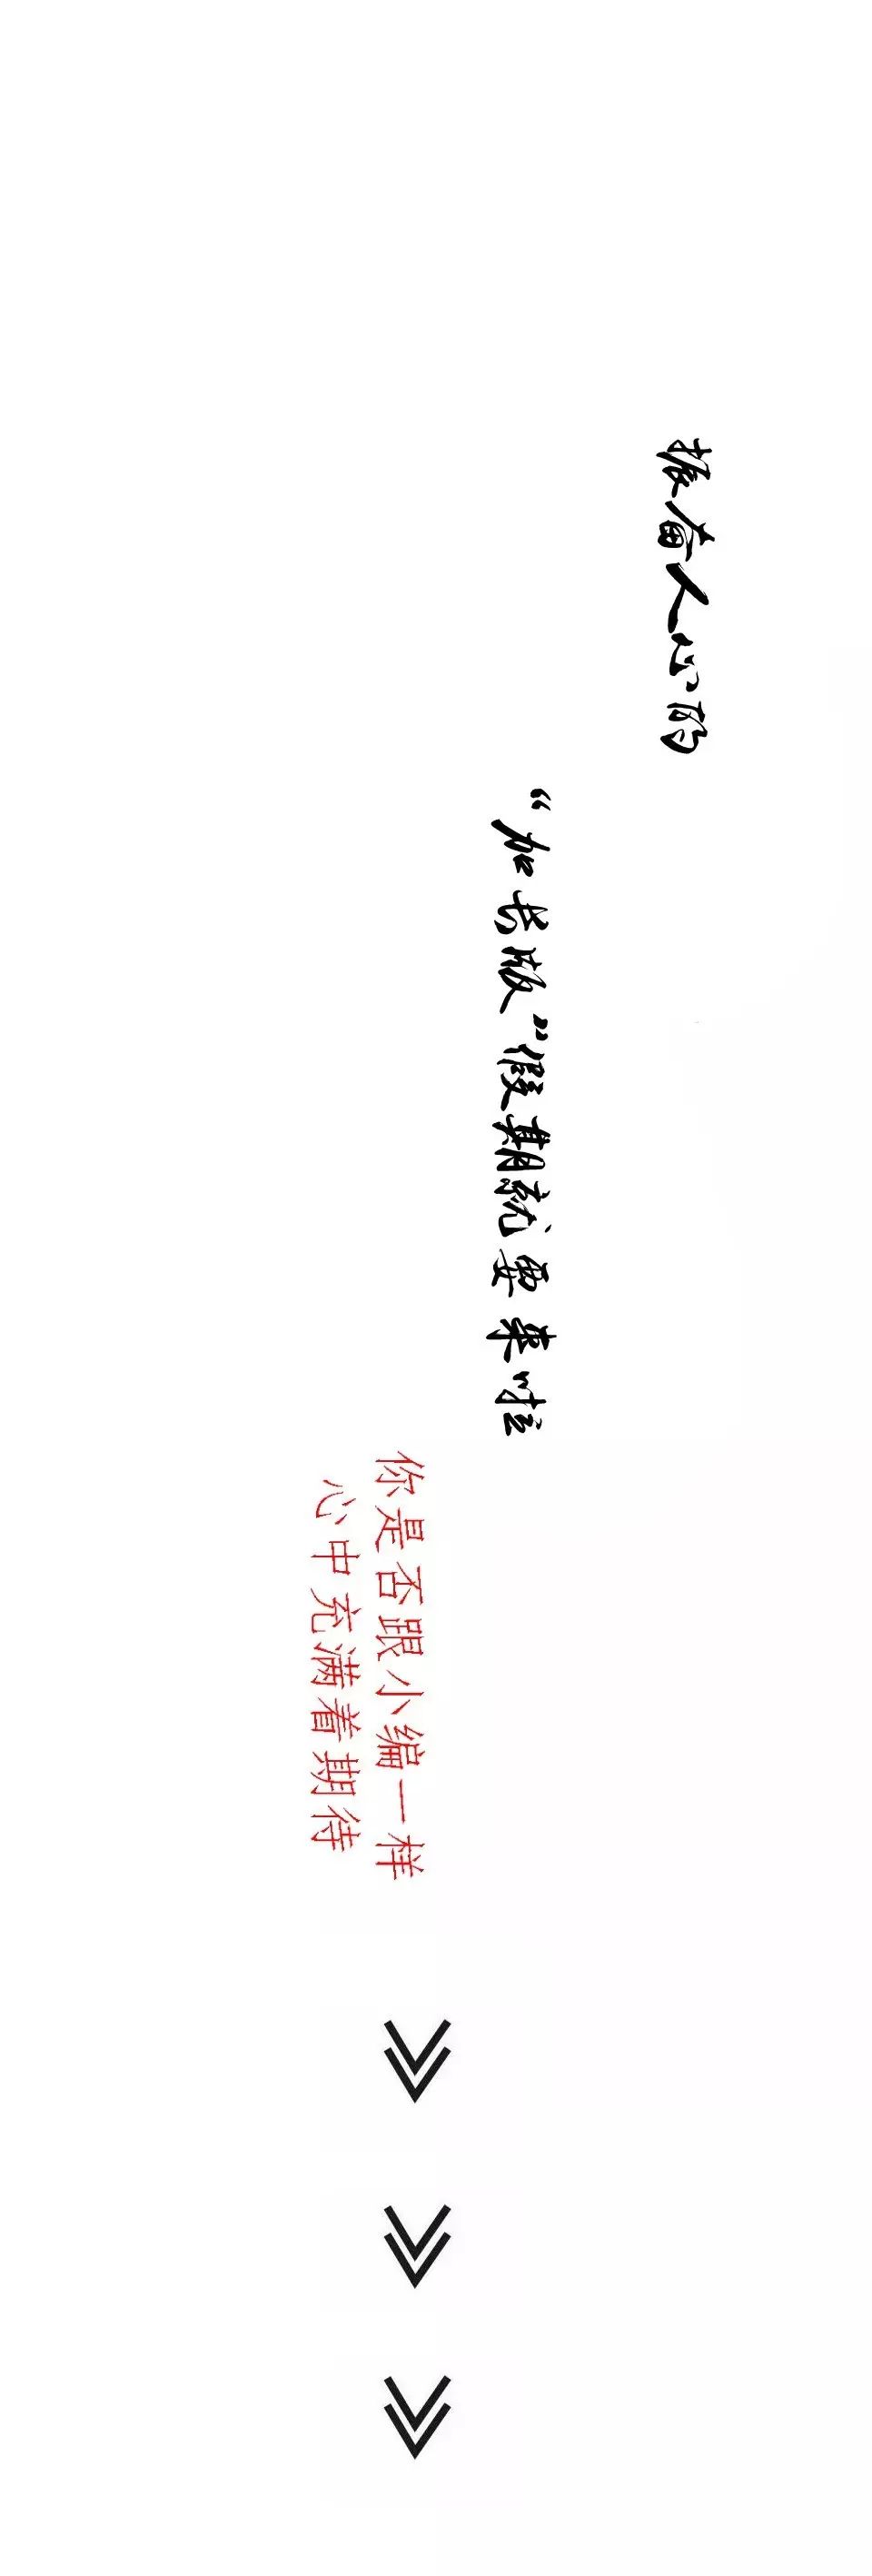 振奋人心的
“加长版”假期就要来啦
你是否跟小编一样
心中充满着期待